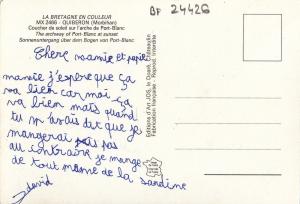 LA BRETAGNE EN COULEUR
MX 2466 - QUIBERON (Morbihan)
Coucher de soleil sur l'arche de Port-Blanc
The archway of Port-Blanc at sunset
Sonnenuntergang über dem Bogen von Port-Blanc
BF 24426
Chère mamie et papie
mamie j'espère que ça
va bien car moi ça
va bien mais quand
tu m'avais dit que je
mangerai pas
au contraire je mange
de tout même de la sardine
David
Editions d'Art JOS, le Doaré, Châteaulin
Fabrication française - Reprod. interdite